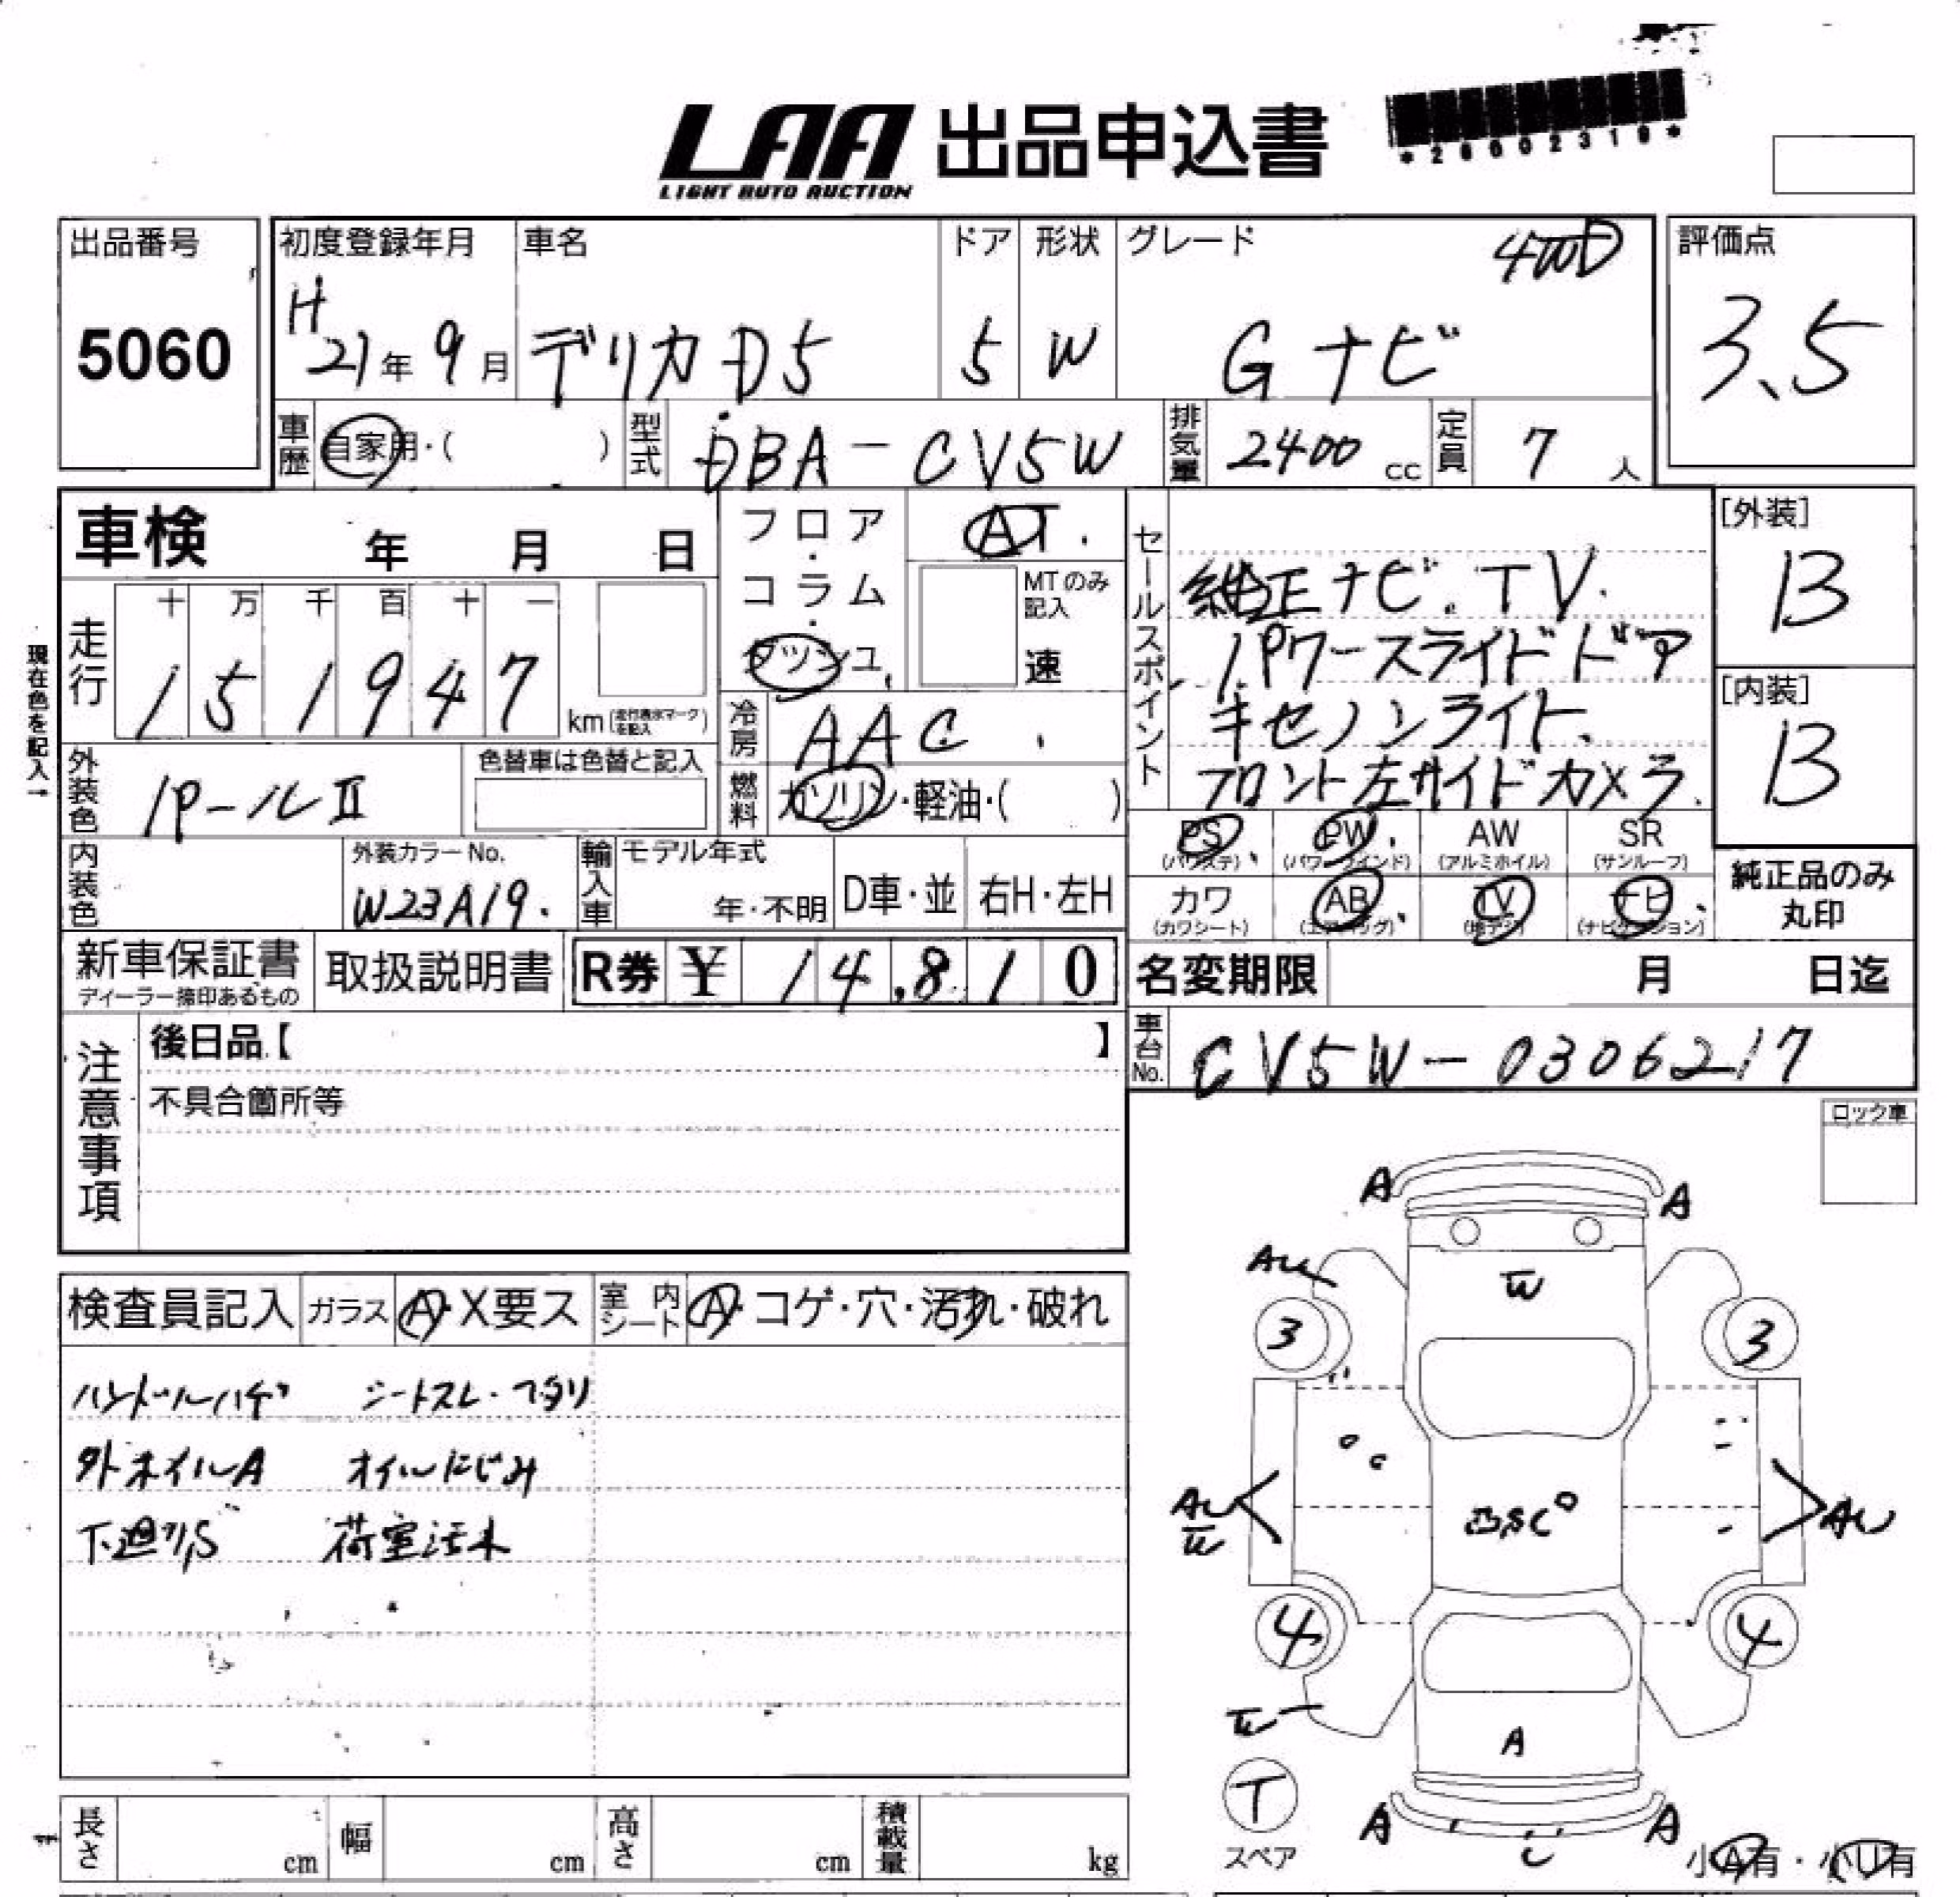 LAA 出品申込書
LIGHT AUTO AUCTION
*26002319*
出品番号
5060
初度登録年月
H21年9月
車名
デリカD5
ドア
5
形状
W
グレード
4WD
Gナビ
評価点
3.5
車歴 自家用・( )
型式 DBA-CV5W
排気量 2400cc
定員 7人
車検 年 月 日
フロア・コラム・ダッシュ
AT
MTのみ記入
速
走行
十 万 千 百 十 一
151947
km(走行票示マーク を記入)
現在色を記入→
冷房 AAC
外装色 パールⅡ
色替車は色替と記入
燃料 ガソリン・軽油・( )
セールスポイント
純正ナビ.TV.
パワースライドドア
キセノンライト.
フロント左サイドカメラ.
[外装]
B
[内装]
B
PS (パワステ) PW (パワーウインド) AW (アルミホイル) SR (サンルーフ)
カワ (カワシート) AB (エアバッグ) TV (地デジ) ナビ (ナビゲーション)
純正品のみ丸印
内装色
外装カラーNo.
W23A19.
輸入車 モデル年式
年・不明 D車・並 右H・左H
新車保証書
ディーラー捺印あるもの
取扱説明書
R券 ¥ 14,810
名変期限 月 日迄
車台No. CV5W-0306217
注意事項
後日品【 】
不具合箇所等
ロック車
検査員記入 ガラス A・X要ス 室内シート A・コゲ・穴・汚れ・破れ
ハンドルハゲ シートスレ・ヘタリ
外ホイルA オイルにじみ
下廻り,S 荷室汚れ
A A
AU W
3 3
AU W AU
凸SC
4 4
W A
T
スペア
A A
U
小A有・小U有
長さ cm 幅 cm 高さ cm 積載量 kg